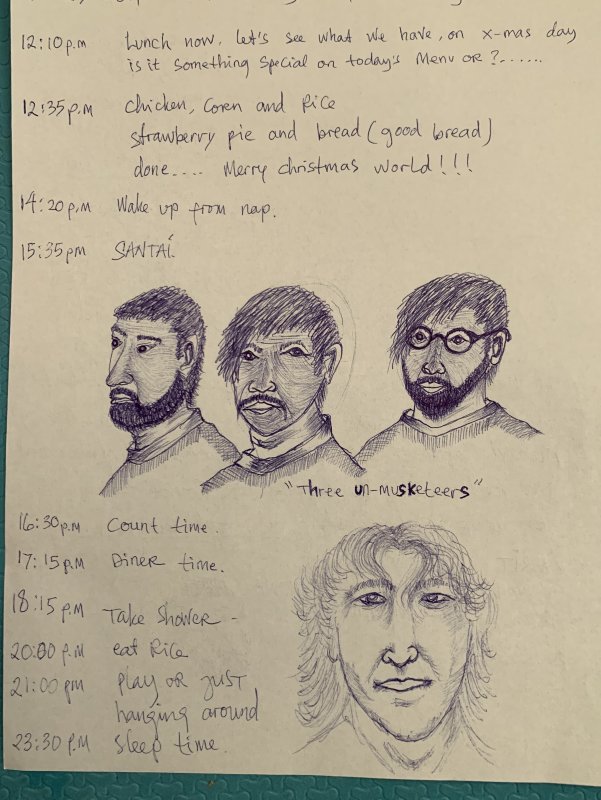 12:10p.m Lunch now, let's see what we have, on x-mas day
is it something special on today's Menu or ?......
12:35p.m chicken, corn and Rice
strawberry pie and bread (good bread)
done.... Merry christmas world!!!
14:20p.m Wake up from nap.
15:35pm SANTAÍ.
"Three un-musketeers"
16:30p.m Count time.
17:15p.m Diner time.
18:15p.m Take shower -
20:00p.m eat Rice
21:00pm play or just
hanging around
23:30p.m sleep time.